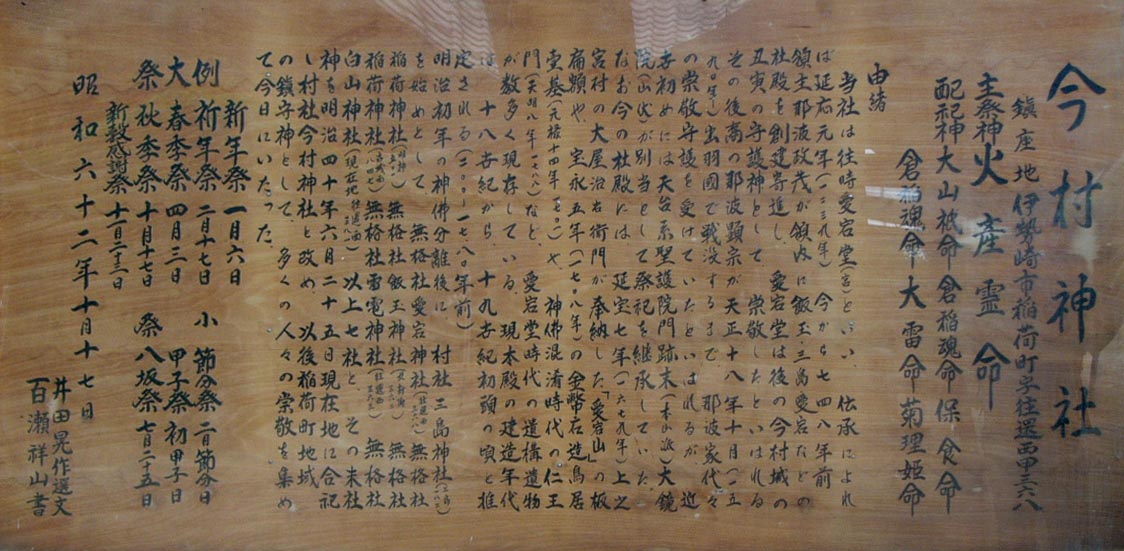 今村神社
鎮座地 伊勢崎市稲荷町字往還西甲三六八
主祭神 火産霊命
配祀神 大山祇命 倉稲魂命 保食命
倉稲魂命 大雷命 菊理姫命
由緒
当社は往時愛宕堂(宮)といい、伝承によれ
ば延応元年(一二三九年)今から七四八年前
領主那波政茂が領内に飯玉・三島・愛宕などの
社殿を創建寄進し、愛宕堂は後の今村城の
丑寅の守護神として崇敬したといはれる
その後裔の那波顕宗が天正十八年十月(一五
九〇年)出羽國で戦没するまで、那波家代々
の崇敬守護を受けていたといはれるが、近
世初めには天台系聖護院門跡末(本山派)大鏡
院(山伏)が別当として祭祀を継承していた。
なお今の社殿には、延宝七年(一六七九年)上之
宮村の大屋治右衛門が奉納した「愛宕山」の板
扁額や、宝永五年(一七〇八年)の金幣石造鳥居
壱基(元禄十四年)や、神佛混淆時代の仁王
門(天明八年一七八八)など、愛宕堂時代の遺構遺物
が数多く現存している。現本殿の建造年代
は、十八世紀から、十九世紀初頭の頃と推
定される(二〇〇―一七八〇年前)
明治初年の神佛分離後に、村社三島神社
を始めとして、無格社愛宕神社 無格社
稲荷神社 無格社飯玉神社 無格社
稲荷神社 無格社雷電神社 無格社
白山神社(現在地) 以上七社と、その末社
神を明治四十年六月二十五日現在地に合祀
し村社今村神社と改め、以後稲荷町地域
の鎮守神として、多くの人々の崇敬を集め
て今日にいたった。
例 新年祭 一月六日
祈年祭 二月十七日 小 節分祭 二月節分日
大 春季祭 四月三日 甲子祭 初甲子日
祭 秋季祭 十月十七日 祭 八坂祭 七月二十五日
新穀感謝祭 十一月二十三日
昭和六十二年十月十七日
井田晃作選文
百瀬祥山書